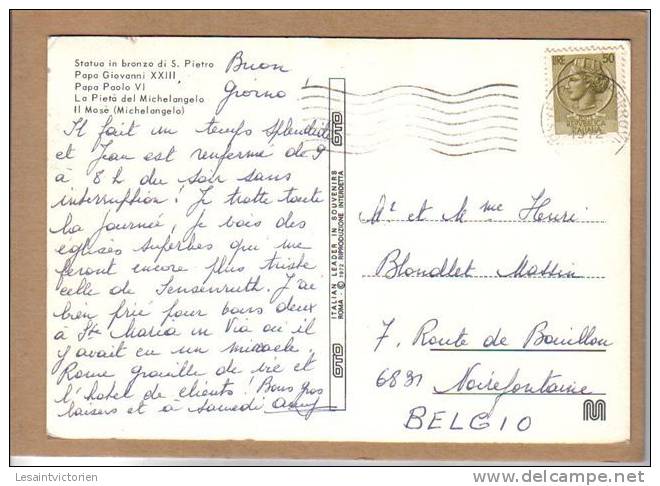 Statua in bronzo di S. Pietro
Papa Giovanni XXIII
Papa Paolo VI
La Pietà del Michelangelo
Il Mosè (Michelangelo)
Buon
giorno !
Il fait un temps splendide
et Jean est renfermé de 9
à 8 h du soir sans
interruption ! Je trotte toute
la journée, je vois des
églises superbes qui me
feront encore plus triste
celle de Sensenruth. J'ai
bien prié pour vous deux
à Ste Maria in Via où il
y avait eu un miracle.
Rome grouille de vie et
l'hôtel de clients ! Bons gros
baisers et à Samedi
OTO
ITALIAN LEADER IN SOUVENIRS
ROMA - © 1972 RIPRODUZIONE INTERDETTA
OTO
LIRE 50
REPUBBLICA
ITALIANA
1972
Mr et Mme Henri
Blondlet Massin
7, Route de Bouillon
6831 Noirefontaine
BELGIO
Lesaintvictorien
delcampe.net